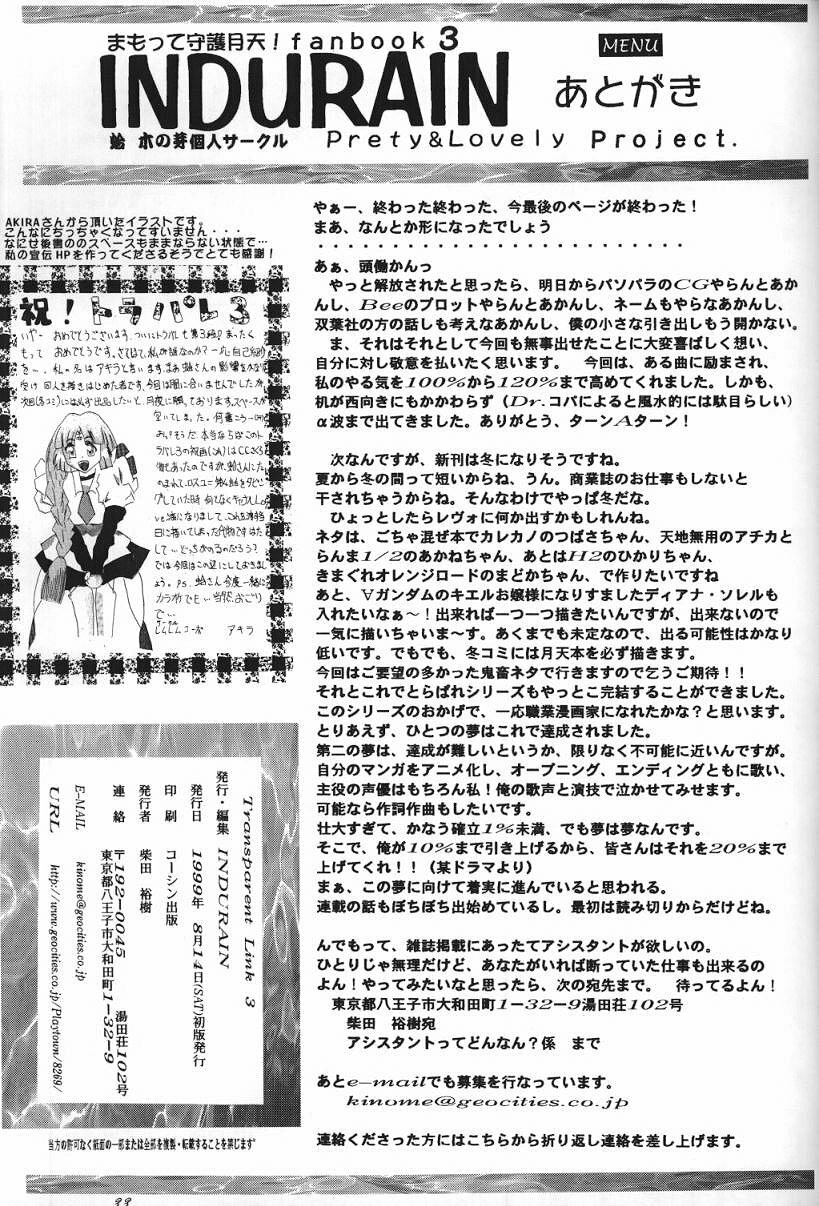 まもって守護月天！fanbook 3
INDURAIN
蛤 木の芽個人サークル
Prety&Lovely Project.
MENU
あとがき
AKIRAさんから頂いたイラストです。
こんなにちっちゃくなってすいません・・・
なにせ後書ののスペースもままならない状態で…
私の宣伝HPを作ってくださるそうでとても感謝！
祝！トラパレ3
いやーおめでとうございます。ついにトラパレも第3段！まったく
もって おめでとうです。
では今回はこの辺にしておきまし
ょう。PS.
アキラ
やぁー、終わった終わった、今最後のページが終わった！
まあ、なんとか形になったでしょう
・・・・・・・・・・・・・・・・・・・・・・・・・・・
あぁ、頭働かんっ
やっと解放されたと思ったら、明日からパソパラのCGやらんとあか
んし、Beeのプロットやらんとあかんし、ネームもやらなあかんし、
双葉社の方の話しも考えなあかんし、僕の小さな引き出しもう開かない。
ま、それはそれとして今回も無事出せたことに大変喜ばしく想い、
自分に対し敬意を払いたく思います。　今回は、ある曲に励まされ、
私のやる気を100%から120%まで高めてくれました。しかも、
机が西向きにもかかわらず（Dr.コパによると風水的には駄目らしい）
α波まで出てきました。ありがとう、ターンAターン！
次なんですが、新刊は冬になりそうですね。
夏から冬の間って短いからね、うん。商業誌のお仕事もしないと
干されちゃうからね。そんなわけでやっぱ冬だな。
ひょっとしたらレヴォに何か出すかもしれんね。
ネタは、ごちゃ混ぜ本でカレカノのつばさちゃん、天地無用のアチカと
らんま1/2のあかねちゃん、あとはH2のひかりちゃん、
きまぐれオレンジロードのまどかちゃん、で作りたいですね
あと、∀ガンダムのキエルお嬢様になりすましたディアナ・ソレルも
入れたいなぁ～！出来れば一つ一つ描きたいんですが、出来ないので
一気に描いちゃいま～す。あくまでも未定なので、出る可能性はかなり
低いです。でもでも、冬コミには月天本を必ず描きます。
今回はご要望の多かった鬼畜ネタで行きますので乞うご期待！！
それとこれでとらぱれシリーズもやっとこ完結することができました。
このシリーズのおかげで、一応職業漫画家になれたかな？と思います。
とりあえず、ひとつの夢はこれで達成されました。
第二の夢は、達成が難しいというか、限りなく不可能に近いんですが。
自分のマンガをアニメ化し、オープニング、エンディングともに歌い、
主役の声優はもちろん私！俺の歌声と演技で泣かせてみせます。
可能なら作詞作曲もしたいです。
壮大すぎて、かなう確立1%未満、でも夢は夢なんです。
そこで、俺が10%まで引き上げるから、皆さんはそれを20%まで
上げてくれ！！（某ドラマより）
まぁ、この夢に向けて着実に進んでいると思われる。
連載の話もぼちぼち出始めているし。最初は読み切りからだけどね。
んでもって、雑誌掲載にあったてアシスタントが欲しいの。
ひとりじゃ無理だけど、あなたがいれば断っていた仕事も出来るの
よん！やってみたいなと思ったら、次の宛先まで。　待ってるよん！
東京都八王子市大和田町1－32－9湯田荘102号
柴田　裕樹宛
アシスタントってどんなん？係　まで
あとe-mailでも募集を行なっています。
kinome@geocities.co.jp
連絡くださった方にはこちらから折り返し連絡を差し上げます。
Transparent Link 3
発行・編集　INDURAIN
発行日　1999年 8月14日(SAT)初版発行
印刷　コーシン出版
発行者　柴田　裕樹
連絡　〒192-0045
東京都八王子市大和田町1－32－9
湯田荘102号
E-MAIL　kinome@geocities.co.jp
URL　http://www.geocities.co.jp/Playtown/8269/
当方の許可なく紙面の一部または全部を複製・転載することを禁じます
33